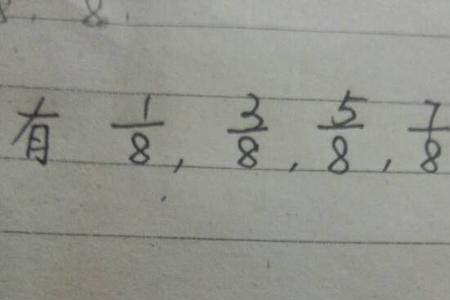 有 1/8, 3/8, 5/8, 7/8